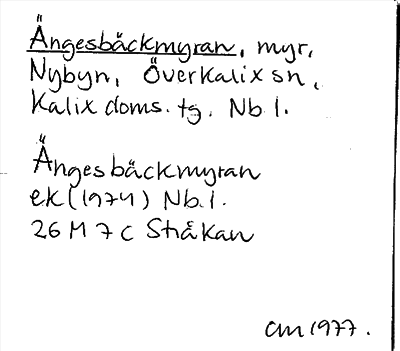 Ängesbäckmyran, myr,
Nybyn, Överkalix sn,
Kalix doms. tg. Nb l.
Ängesbäckmyran
ek (1974) Nb. l.
26 M 7 c Stråkan
CM 1977.